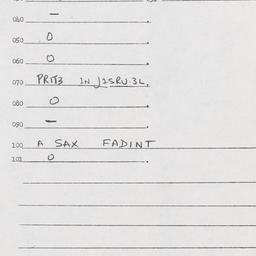 040 —
050 0
060 0
070 PRITZ IN J1SRU.3L.
080 0
090 —
100 A SAX FADINT
101 0